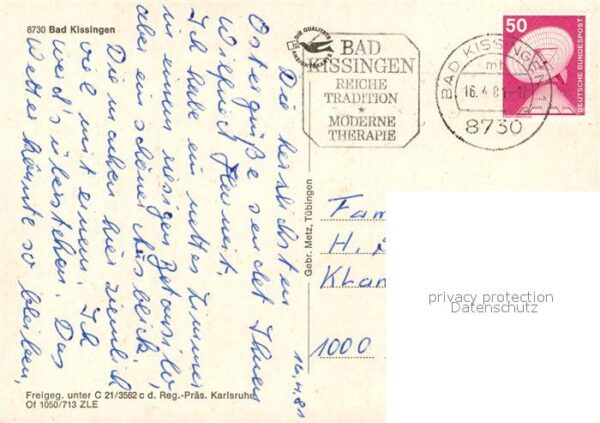 8730 Bad Kissingen
DIE QUALITÄTS
ANSICHTSKARTE
BAD
KISSINGEN
REICHE
TRADITION
*
MODERNE
THERAPIE
BAD KISSINGEN
mh
16.4.8
8730
50
DEUTSCHE BUNDESPOST
16.4.81
Die herzlichsten
Ostergrüße sendet Ihnen
Wilfried
Ich habe ein nettes Zimmer
in einem riesigen Betonsilo,
aber schöner Ausblick,
Die machen hier ziemlich
viel mit einem. Ich
werd's überstehen. Das
Wetter könnte so bleiben.
Gebr. Metz, Tübingen
Fam
H.
Khan
1000
privacy protection
Datenschutz
Freigeg. unter C 21/3562 c d. Reg.-Präs. Karlsruhe
Of 1050/713 ZLE